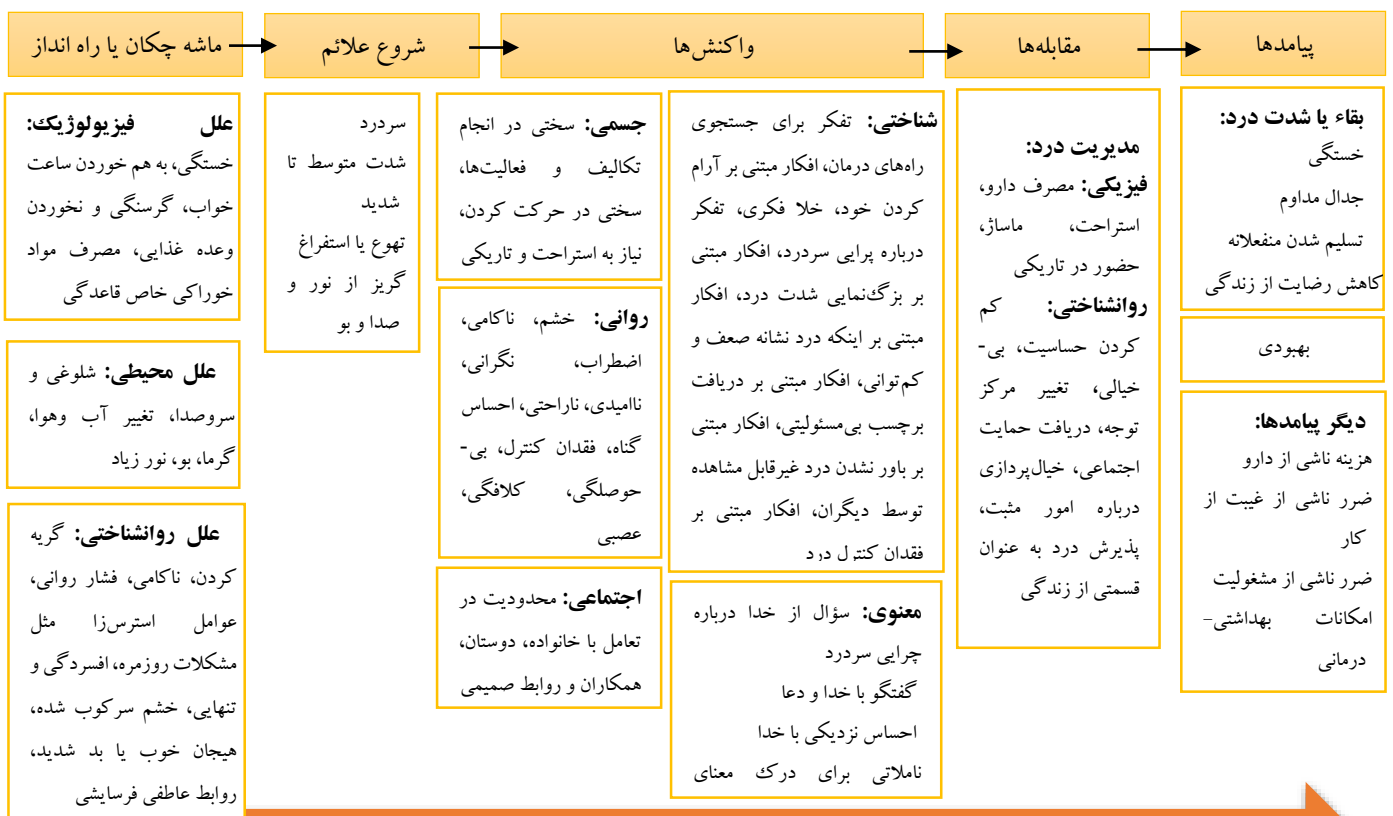 ماشه چکان یا راه انداز
شروع علائم
واکنش‌ها
مقابله‌ها
پیامدها
علل فیزیولوژیک:
خستگی، به هم خوردن ساعت
خواب، گرسنگی و نخوردن
وعده غذایی، مصرف مواد
خوراکی خاص قاعدگی
علل محیطی: شلوغی و
سروصدا، تغییر آب وهوا،
گرما، بو، نور زیاد
علل روانشناختی: گریه
کردن، ناکامی، فشار روانی،
عوامل استرس‌زا مثل
مشکلات روزمره، افسردگی و
تنهایی، خشم سرکوب شده،
هیجان خوب یا بد شدید،
روابط عاطفی فرسایشی
سردرد
شدت متوسط تا
شدید
تهوع یا استفراغ
گریز از نور و
صدا و بو
جسمی: سختی در انجام
تکالیف و فعالیت‌ها،
سختی در حرکت کردن،
نیاز به استراحت و تاریکی
روانی: خشم، ناکامی،
اضطراب، نگرانی،
ناامیدی، ناراحتی، احساس
گناه، فقدان کنترل، بی-
حوصلگی، کلافگی،
عصبی
اجتماعی: محدودیت در
تعامل با خانواده، دوستان،
همکاران و روابط صمیمی
شناختی: تفکر برای جستجوی
راه‌های درمان، افکار مبتنی بر آرام
کردن خود، خلا فکری، تفکر
درباره پرایی سردرد، افکار مبتنی
بر بزرگ‌نمایی شدت درد، افکار
مبتنی بر اینکه درد نشانه صعف و
کم‌توانی، افکار مبتنی بر دریافت
برچسب بی‌مسئولیتی، افکار مبتنی
بر باور نشدن درد غیرقابل مشاهده
توسط دیگران، افکار مبتنی بر
فقدان کنترل درد
معنوی: سؤال از خدا درباره
چرایی سردرد
گفتگو با خدا و دعا
احساس نزدیکی با خدا
ناملاتی برای درک معنای
مدیریت درد:
فیزیکی: مصرف دارو،
استراحت، ماساژ،
حضور در تاریکی
روانشناختی: کم
کردن حساسیت، بی-
خیالی، تغییر مرکز
توجه، دریافت حمایت
اجتماعی، خیال‌پردازی
درباره امور مثبت،
پذیرش درد به عنوان
قسمتی از زندگی
بقاء یا شدت درد:
خستگی
جدال مداوم
تسلیم شدن منفعلانه
کاهش رضایت از زندگی
بهبودی
دیگر پیامدها:
هزینه ناشی از دارو
ضرر ناشی از غیبت از
کار
ضرر ناشی از مشغولیت
امکانات بهداشتی–
درمانی